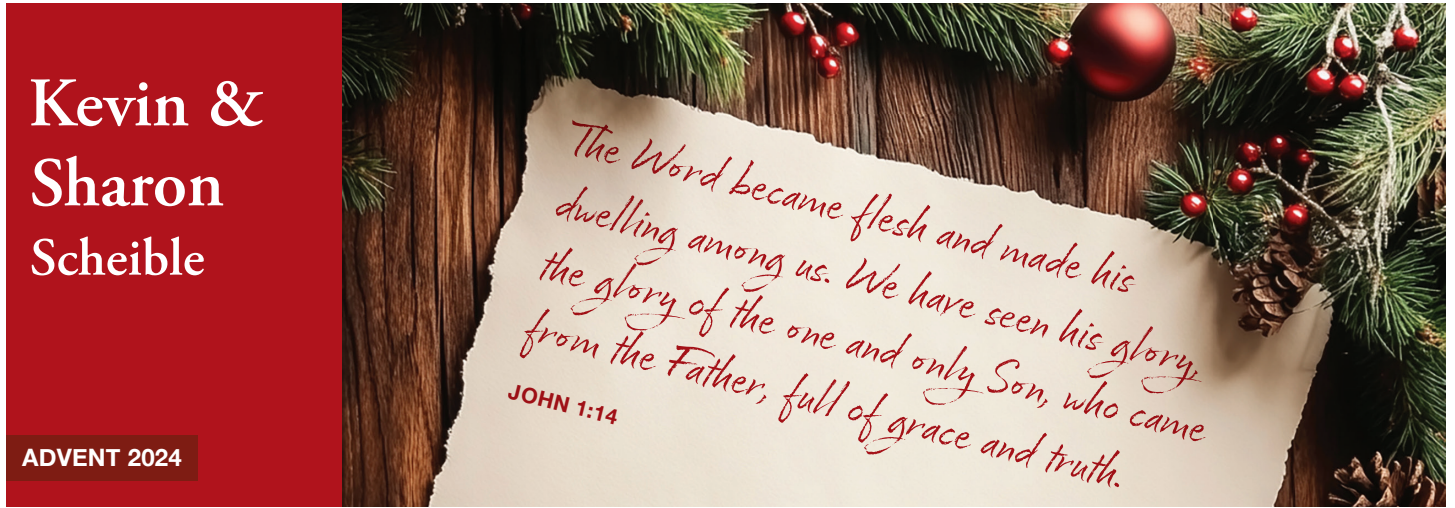 Kevin &
Sharon
Scheible
ADVENT 2024
The Word became flesh and made his
dwelling among us. We have seen his glory,
the glory of the one and only Son, who came
from the Father, full of grace and truth.
JOHN 1:14